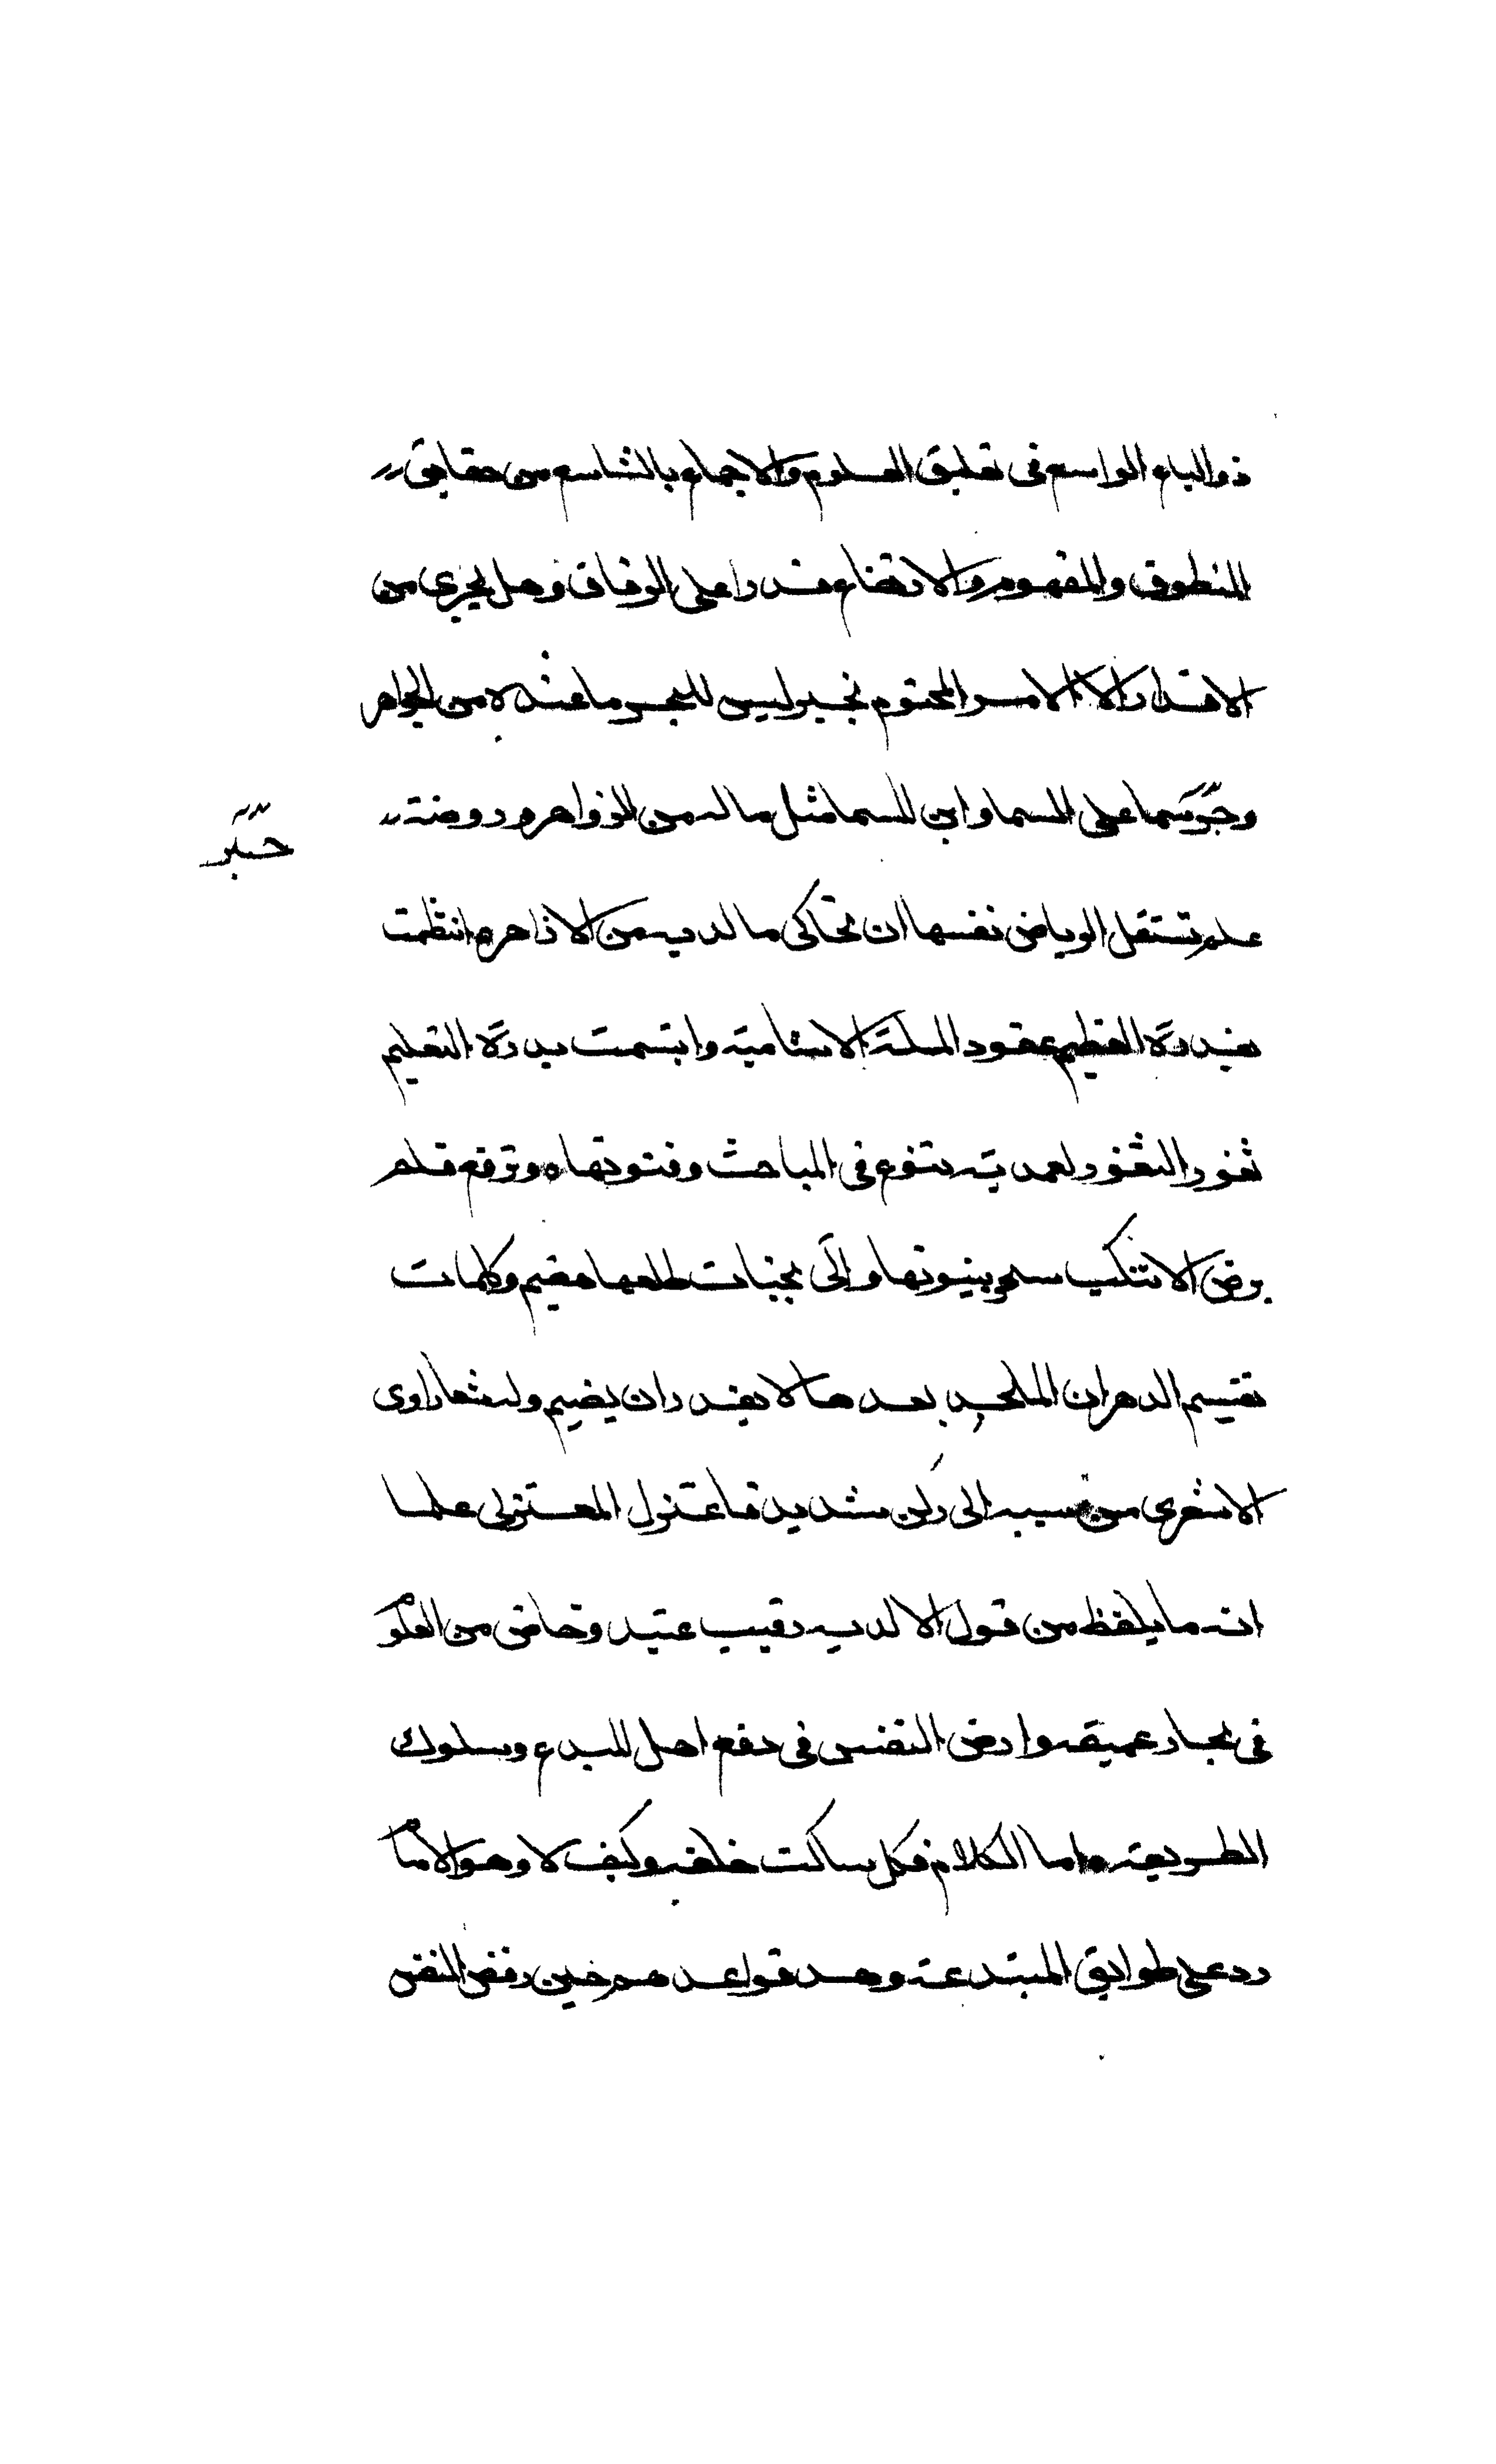 ذو الباع الواسع في تعليق العلوم والاجماع بالشاسع من حقايق
المنطوق والمفهوم والارتضاع قدرا على الوفاق وهل يجري من
الاقدار الا الامر المحتوم نجيز ليس للبحر ما عنده من الجواهر
وحبر سما على السما واين للسما مثل ماله من الزواهر وروضة
حبر
علم تستقل الرياض نفسها ان تحاكي ما لديه من الازاهر وانتظمت
بقدره العظيم عقود الملة الاسلامية وابتسمت بدره التعليم
ثغور الثغور لعمديته يتنوع في المباحث وفنونها وترفع قلم
يرضى الا بتكسب سحر بينونها والى بجنبات طلعها هضيم وكلمات
تقسيم الدهر ان الملحد بعدها لا يقدر ان يضيم وله شعار اوى
الاشعري من سببه الى ركن شديد فاعتزل المعتزلي علما
انه ما يلفظ من قول الا لديه رقيب عتيد وخاض من العلو
في بحار عميقه وارض النفس في دفع اهل البدع وسلوك
الطريقه واما الكلام فكل ساكت خلفه وكيف لا وهو الامام
رد على طوايق المبتدعة وهد قواعدهم حين رفض النقض